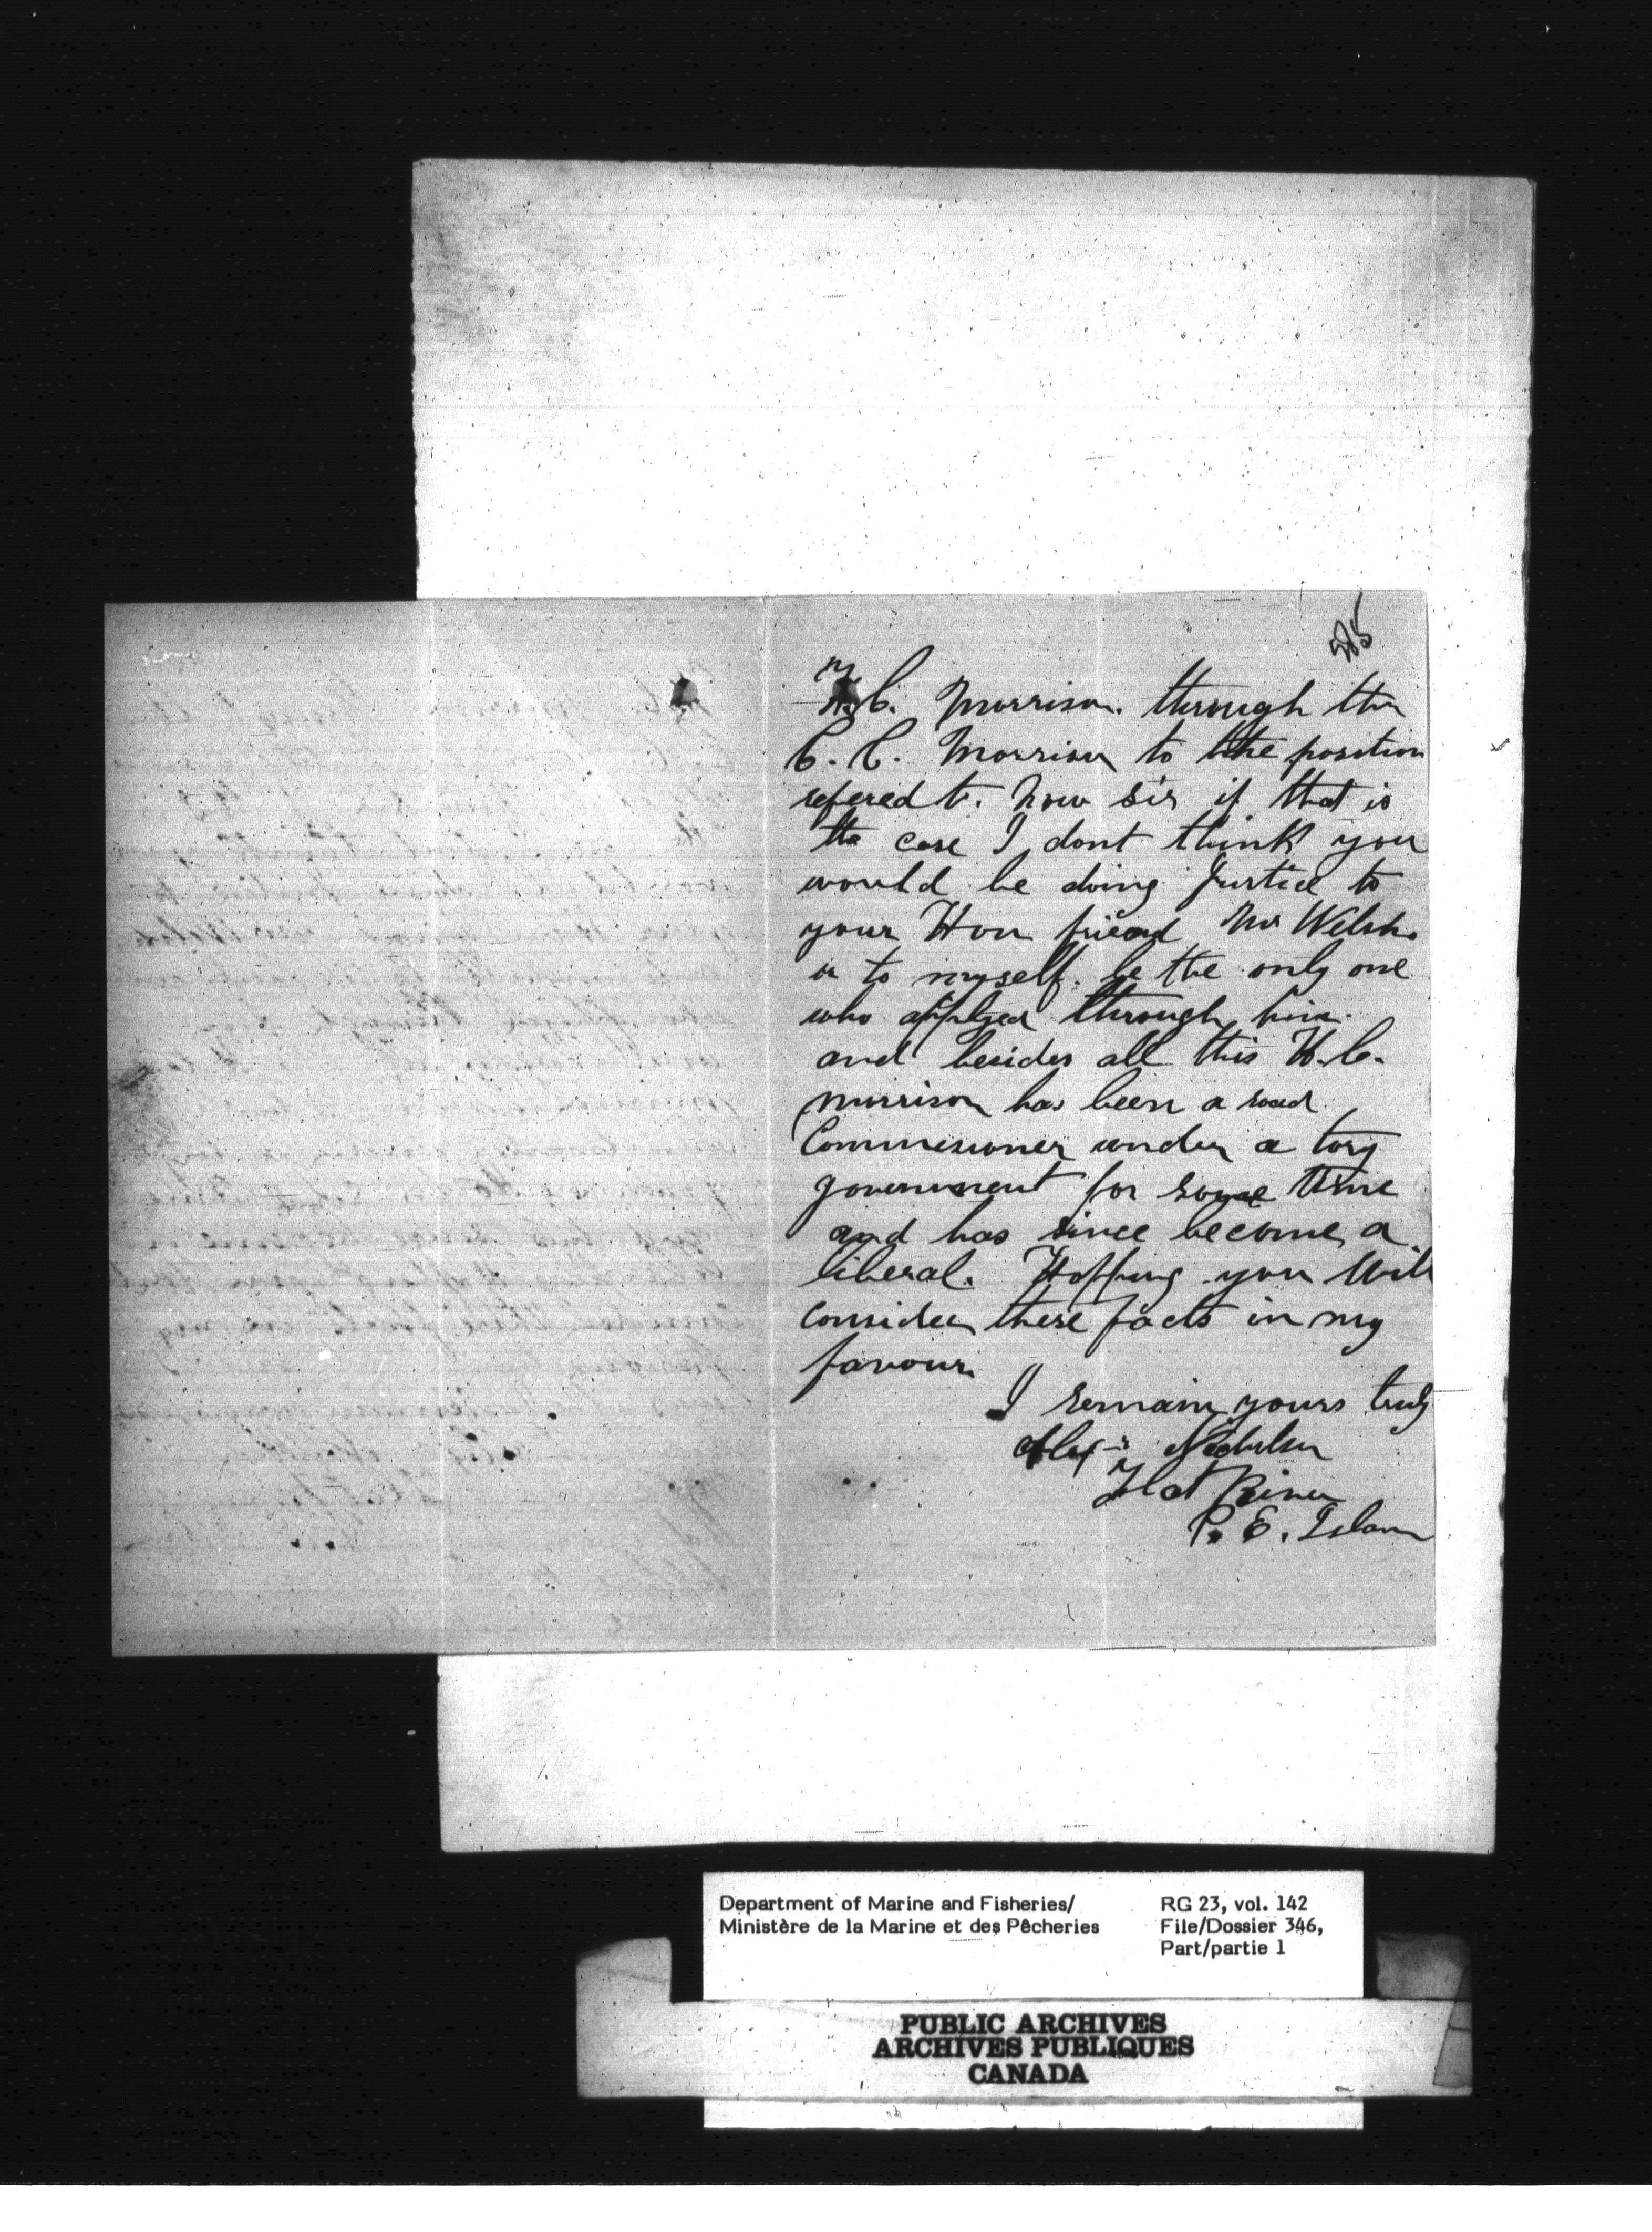 285
H. C. Morrison. through the
C. C. Morrison to the position
refered to. Now sir if that is
the case I dont think you
would be doing Justice to
your Hon friend Mr Welsh.
or to myself. he the only one
who applyed through him.
and besides all this H. C.
Morrison has been a road
Commesioner under a tory
government for some time
and has since become a
liberal. Hopping you Will
consider these facts in my
favour.
I remain yours truly
Alexr Nicholson
Flat River
P. E. Island
Department of Marine and Fisheries/
Ministère de la Marine et des Pêcheries
RG 23, vol. 142
File/Dossier 346,
Part/partie 1
PUBLIC ARCHIVES
ARCHIVES PUBLIQUES
CANADA